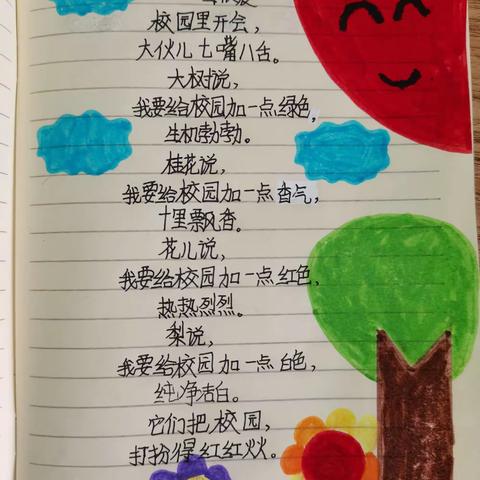 校园里开会，
大伙儿七嘴八舌。
大树说，
我要给校园加一点绿色，
生机勃勃。
桂花说，
我要给校园加一点香气，
十里飘香。
花儿说，
我要给校园加一点红色，
热热烈烈。
梨说，
我要给校园加一点白色，
纯净洁白。
它们把校园，
打扮得红红火火。